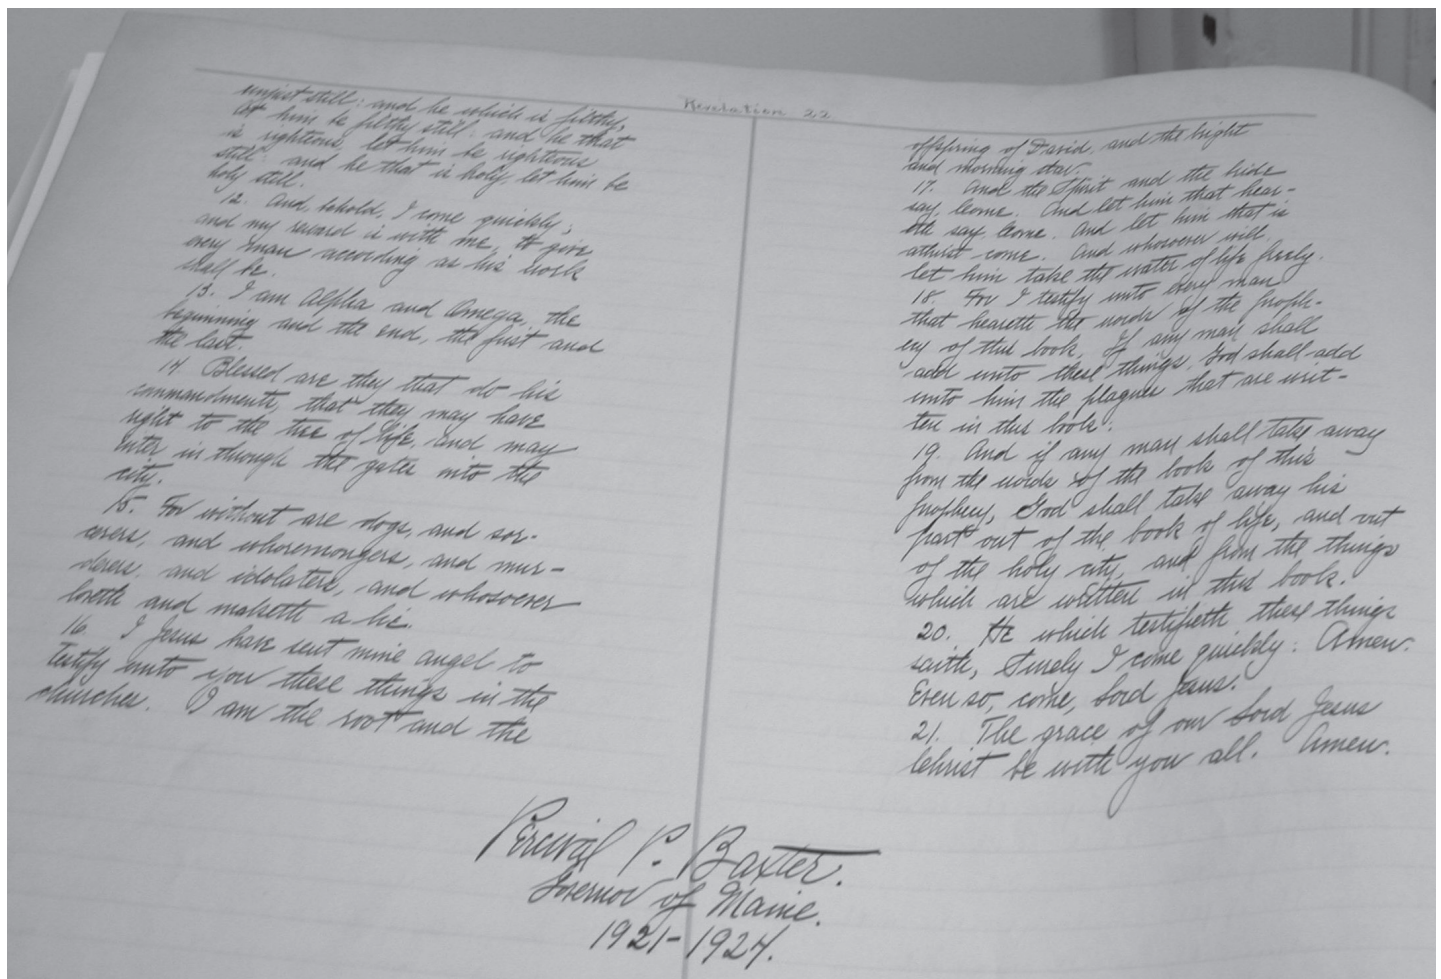 Revelation 22
unjust still: and he which is filthy,
let him be filthy still: and he that
is righteous, let him be righteous
still: and he that is holy, let him be
holy still.
12. And, behold, I come quickly;
and my reward is with me, to give
every man according as his work
shall be.
13. I am Alpha and Omega, the
beginning and the end, the first and
the last.
14. Blessed are they that do his
commandments, that they may have
right to the tree of life, and may
enter in through the gates into the
city.
15. For without are dogs, and sor-
cerers, and whoremongers, and mur-
derers, and idolaters, and whosoever
loveth and maketh a lie.
16. I Jesus have sent mine angel to
testify unto you these things in the
churches. I am the root and the
offspring of David, and the bright
and morning star.
17. And the Spirit and the bride
say, Come. And let him that hear-
eth say, Come. And let him that is
athirst come. And whosoever will,
let him take the water of life freely.
18. For I testify unto every man
that heareth the words of the proph-
ecy of this book, If any man shall
add unto these things, God shall add
unto him the plagues that are writ-
ten in this book:
19. And if any man shall take away
from the words of the book of this
prophecy, God shall take away his
part out of the book of life, and out
of the holy city, and from the things
which are written in this book.
20. He which testifieth these things
saith, Surely I come quickly: Amen.
Even so, come, Lord Jesus.
21. The grace of our Lord Jesus
Christ be with you all. Amen.
Percival P. Baxter.
Governor of Maine.
1921-1924.